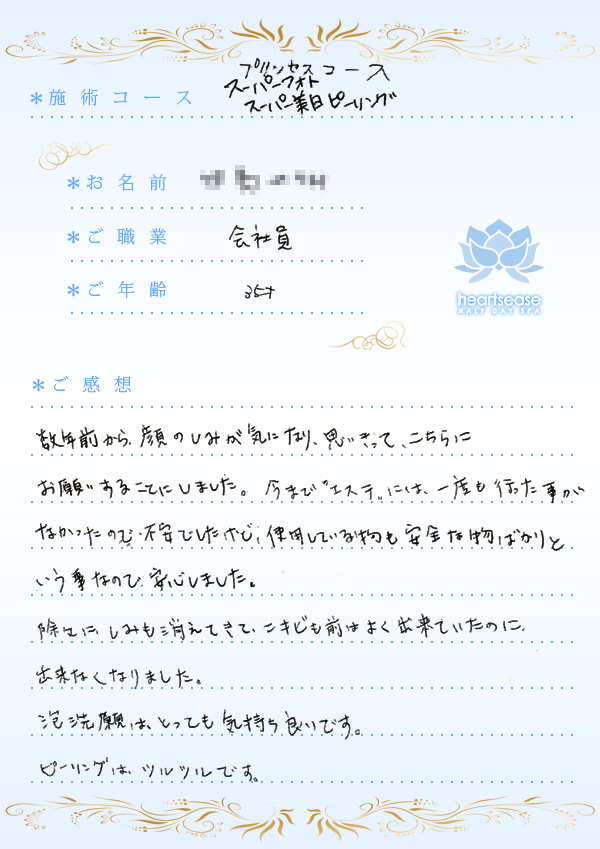 プリンセスコース
スーパーフォト
＊施術コース スーパー美白ピーリング
＊お名前
＊ご職業 会社員
＊ご年齢 35才
heartsease
HALF DAY SPA
＊ご感想
数年前から、顔のしみが気になり、思いきって、こちらに
お願いすることにしました。今まで"エステ"には、一度も行った事が
なかったので、不安でしたけど、使用している物も安全な物ばかりと
いう事なので、安心しました。
除々に、しみも消えてきて、ニキビも前はよく出来ていたのに、
出来なくなりました。
泡洗願は、とっても気持ち良いです。
ピーリングは、ツルツルです。